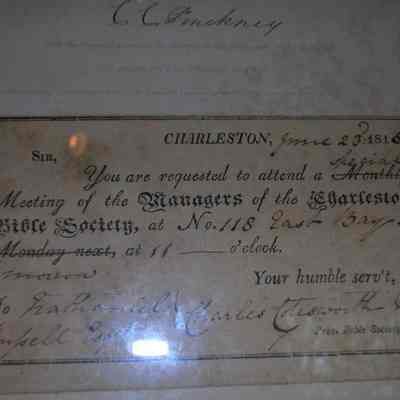 C C Pinckney
CHARLESTON, June 23d 181
SIR,
special
You are requested to attend a Month
Meeting of the Managers of the Charlesto
Bible Society, at No. 118 East Bay
Monday next, at 11 o'clock.
Your humble serv't,
To Nathaniel Charles Cotesworth
Russell Esqr Pres. Bible Society